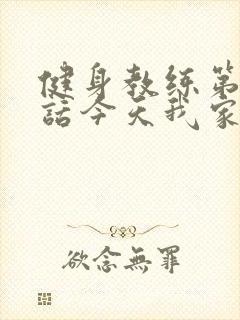 健身教练第
話今天我家
欲念無罪